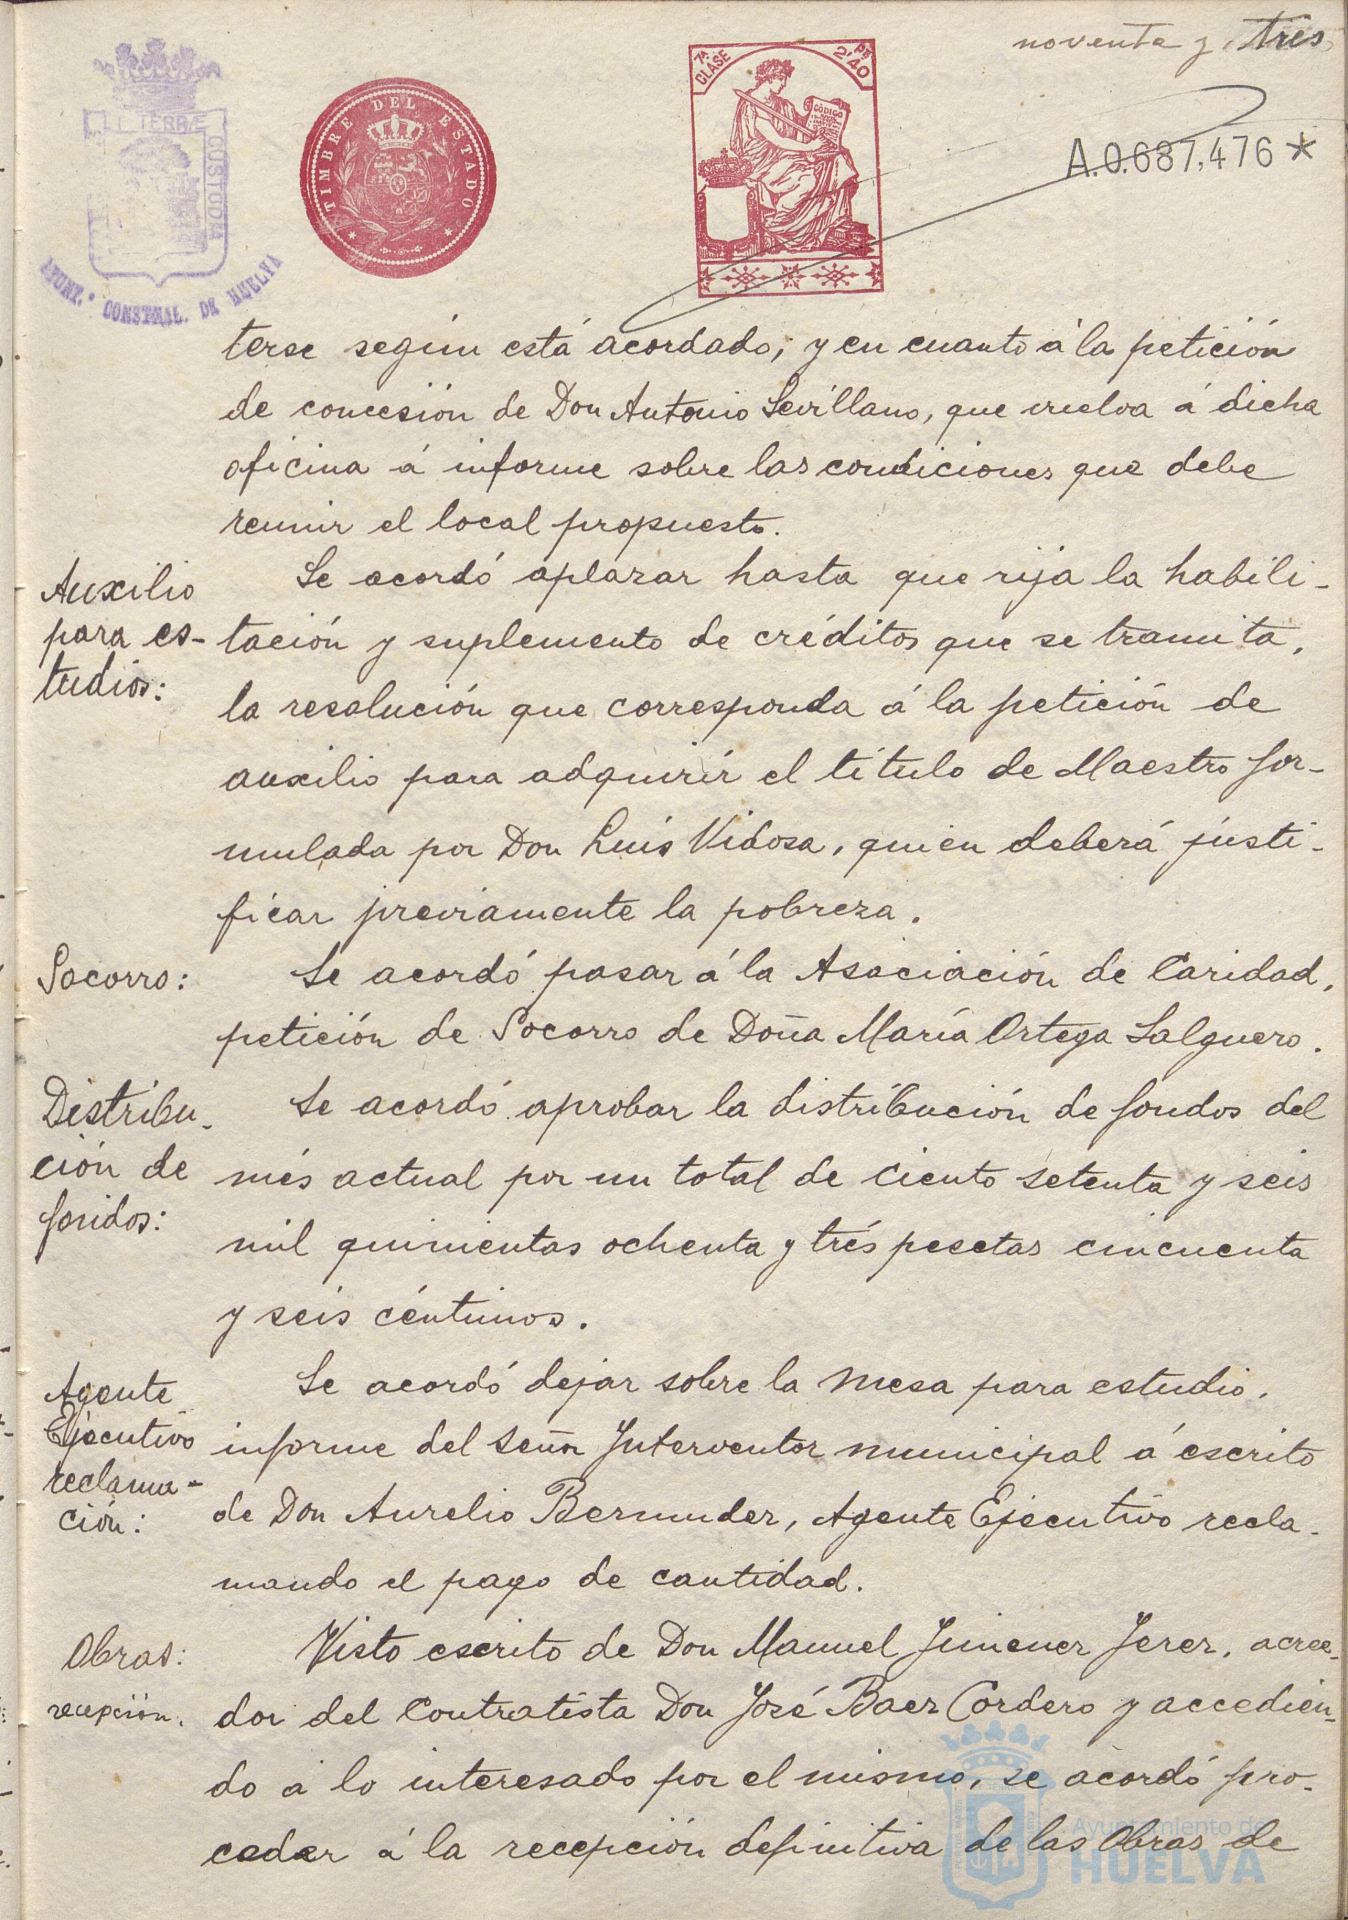 noventa y tres
TERRÆ
CUSTODIA
AYUNT.º CONSTNAL. DE HUELVA
TIMBRE DEL ESTADO
7ª CLASE
2'40
CÓDIGO
A.0.687,476 *
terse según está acordado; y en cuanto á la petición
de concesión de Don Antonio Sevillano, que vuelva á dicha
oficina á informe sobre las condiciones que debe
reunir el local propuesto.
Auxilio
para es-
tudios:
Se acordó aplazar hasta que rija la habili-
tación y suplemento de créditos que se tramita,
la resolución que corresponda á la petición de
auxilio para adquirir el título de Maestro for-
mulada por Don Luís Vidosa, quien deberá justi-
ficar previamente la pobreza.
Socorro:
Se acordó pasar á la Asociación de Caridad,
petición de Socorro de Doña María Ortega Salguero.
Distribu-
ción de
fondos:
Se acordó aprobar la distribución de fondos del
més actual por un total de ciento setenta y seis
mil quinientas ochenta y trés pesetas cincuenta
y seis céntimos.
Agente
Ejecutivo
reclama-
ción:
Se acordó dejar sobre la mesa para estudio,
informe del Señor Interventor municipal á escrito
de Don Aurelio Bermudez, Agente Ejecutivo recla-
mando el pago de cantidad.
Obras:
recepción.
Visto escrito de Don Manuel Jimenez Jerez, acree-
dor del Contratista Don José Baez Cordero y accedien-
do a lo interesado por el mismo, se acordó pro-
ceder á la recepción definitiva de las Obras de
Ayuntamiento de
HUELVA